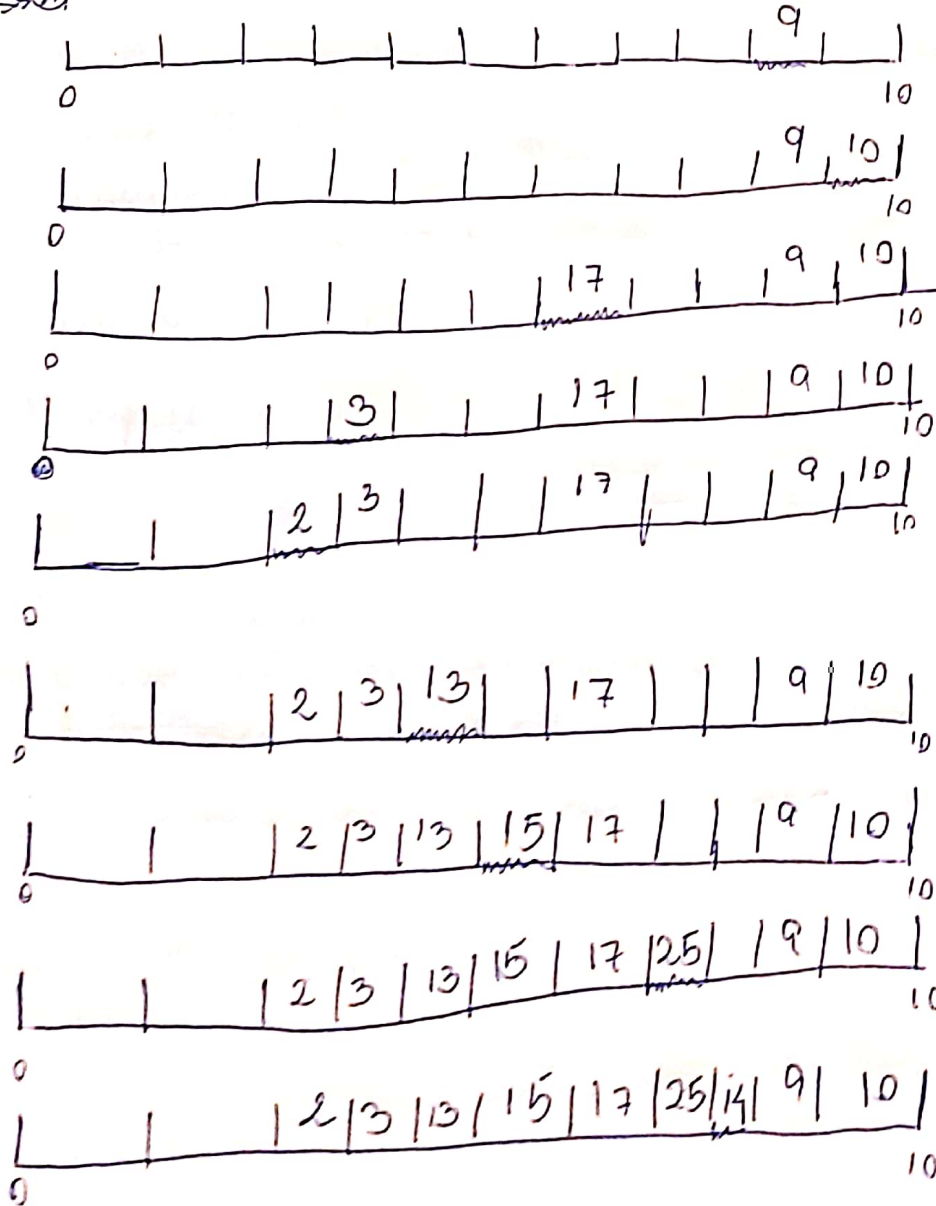 9
0 10
9 10
0 10
17 9 10
0 10
3 17 9 10
0 10
2 3 17 9 10
0 10
2 3 13 17 9 10
0 10
2 3 13 15 17 9 10
0 10
2 3 13 15 17 25 9 10
0 10
2 3 13 15 17 25 14 9 10
0 10